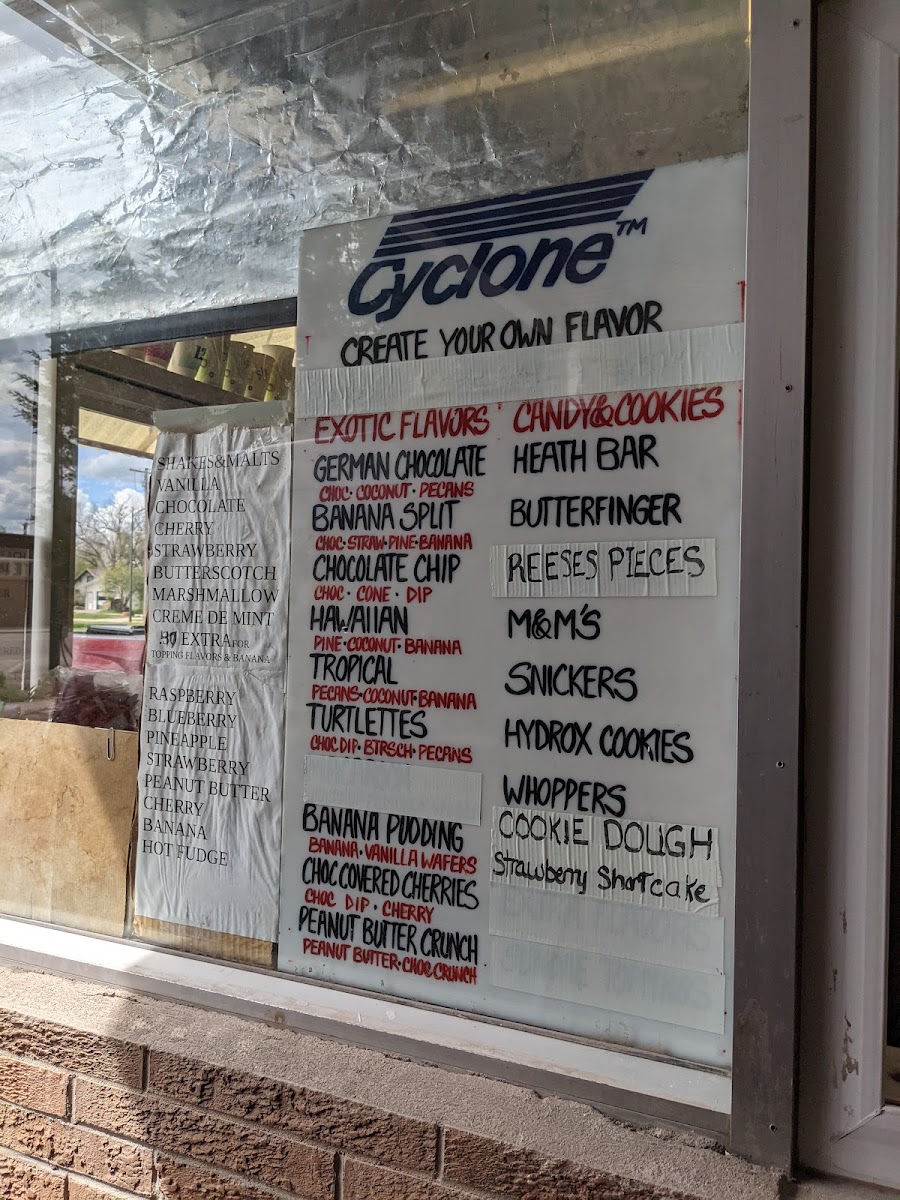 Cyclone™
CREATE YOUR OWN FLAVOR
SHAKES&MALTS
VANILLA
CHOCOLATE
CHERRY
STRAWBERRY
BUTTERSCOTCH
MARSHMALLOW
CREME DE MINT
EXTRA FOR
TOPPING FLAVORS & BANANA
RASPBERRY
BLUEBERRY
PINEAPPLE
STRAWBERRY
PEANUT BUTTER
CHERRY
BANANA
HOT FUDGE
EXOTIC FLAVORS
GERMAN CHOCOLATE
CHOC • COCONUT • PECANS
BANANA SPLIT
CHOC • STRAW • PINE • BANANA
CHOCOLATE CHIP
CHOC • CONE • DIP
HAWAIIAN
PINE • COCONUT • BANANA
TROPICAL
PECANS • COCONUT • BANANA
TURTLETTES
CHOC DIP • BTRSCH • PECANS
BANANA PUDDING
BANANA • VANILLA WAFERS
CHOC COVERED CHERRIES
CHOC DIP • CHERRY
PEANUT BUTTER CRUNCH
PEANUT BUTTER • CHOC CRUNCH
CANDY&COOKIES
HEATH BAR
BUTTERFINGER
REESES PIECES
M&M'S
SNICKERS
HYDROX COOKIES
WHOPPERS
COOKIE DOUGH
Strawberry Shortcake